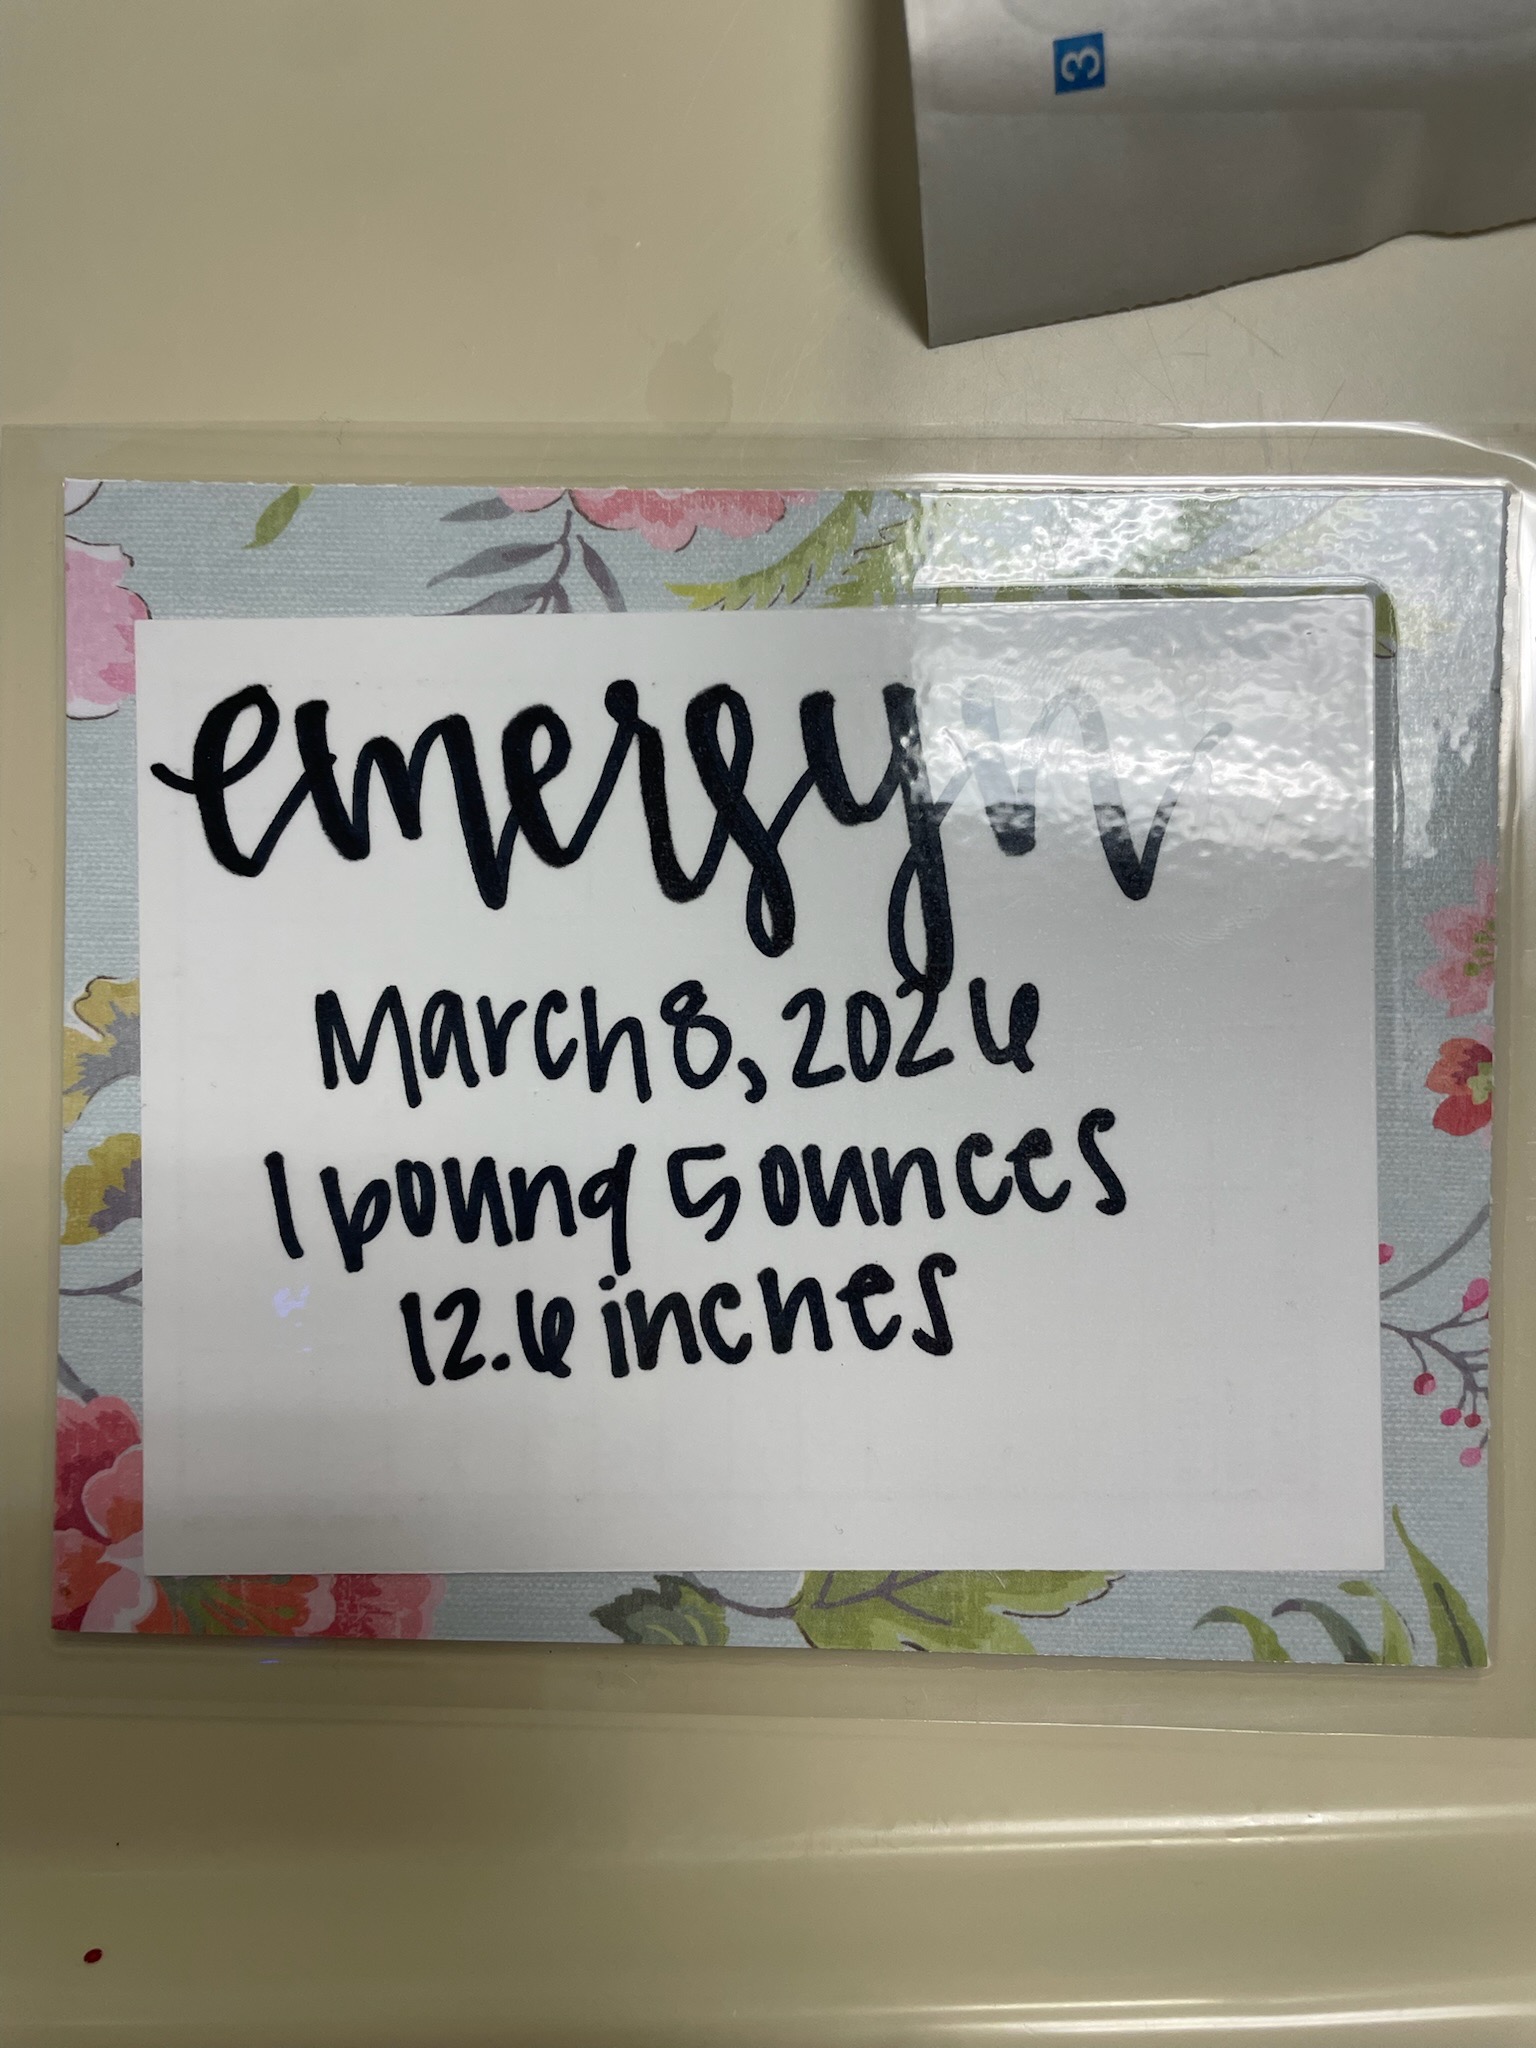 3
emersyn
March 8, 2026
1 pound 5 ounces
12.6 inches